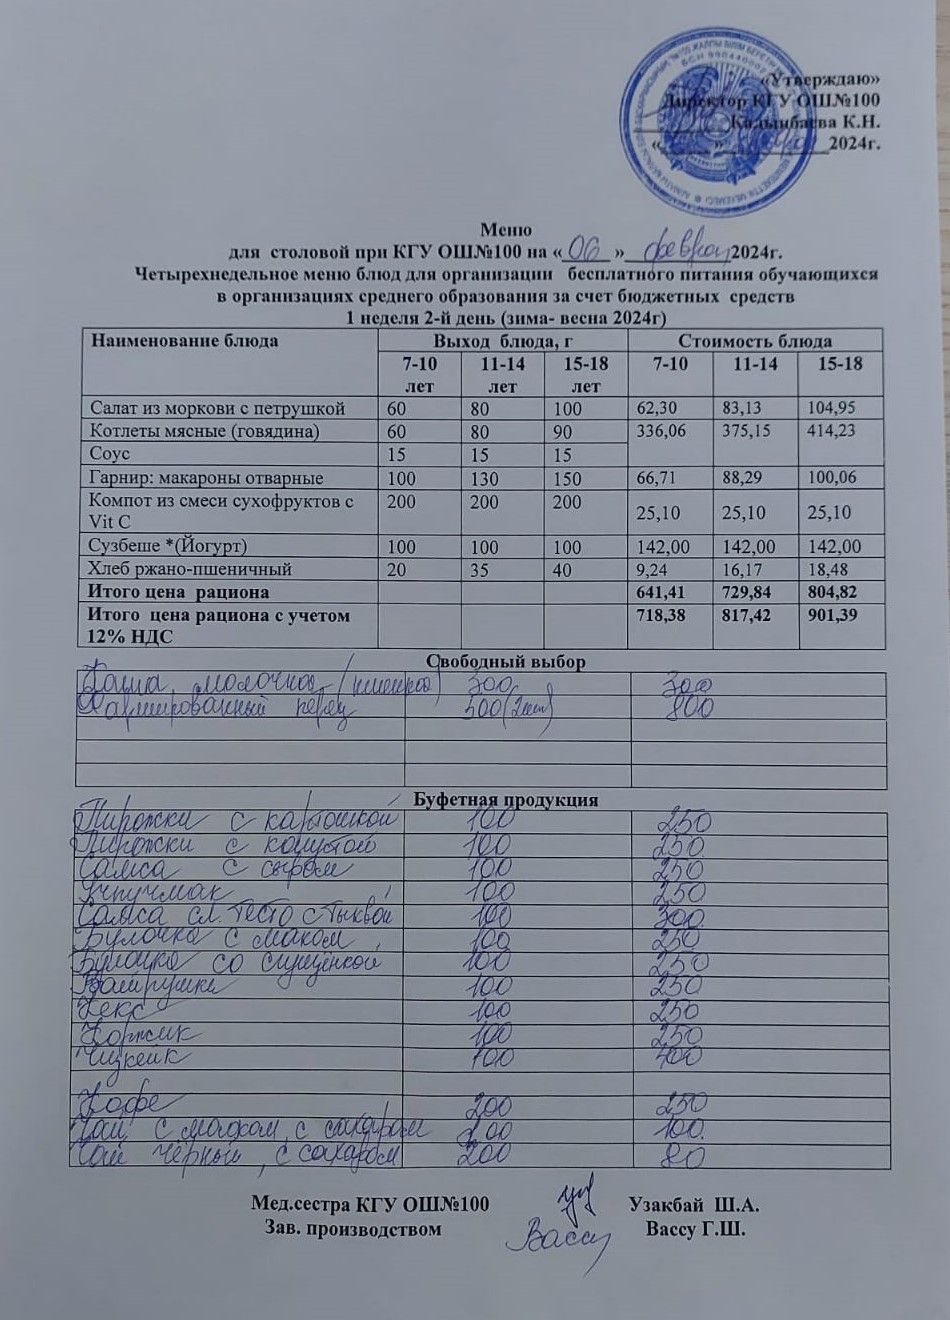 «Утверждаю»
Директор КГУ ОШ№100
Калынбаева К.Н.
« » 2024г.
Меню
для столовой при КГУ ОШ№100 на « 06 » феврал 2024г.
Четырехнедельное меню блюд для организации бесплатного питания обучающихся
в организациях среднего образования за счет бюджетных средств
1 неделя 2-й день (зима- весна 2024г)
Наименование блюда Выход блюда, г Стоимость блюда
7-10 лет 11-14 лет 15-18 лет 7-10 11-14 15-18
Салат из моркови с петрушкой 60 80 100 62,30 83,13 104,95
Котлеты мясные (говядина) 60 80 90 336,06 375,15 414,23
Соус 15 15 15
Гарнир: макароны отварные 100 130 150 66,71 88,29 100,06
Компот из смеси сухофруктов с
Vit C 200 200 200 25,10 25,10 25,10
Сузбеше *(Йогурт) 100 100 100 142,00 142,00 142,00
Хлеб ржано-пшеничный 20 35 40 9,24 16,17 18,48
Итого цена рациона 641,41 729,84 804,82
Итого цена рациона с учетом
12% НДС 718,38 817,42 901,39
Свободный выбор
Каша молочная 300 300
Фаршированный перец 500(2шт) 800
Буфетная продукция
Пирожки с картошкой 100 250
Пирожки с капустой 100 250
Самса с сыром 100 250
Учпучмак 100 250
Самса сл. тесто с тыквой 100 300
Булочка с маком 100 250
Булочка со сгущёнкой 100 250
Ватрушки 100 250
Кекс 100 250
Коржик 100 250
Чизкейк 100 400
Кофе 200 250
Чай с молоком, с сахаром 200 100
Чай чёрный, с сахаром 200 80
Мед.сестра КГУ ОШ№100 Узакбай Ш.А.
Зав. производством Вассу Вассу Г.Ш.